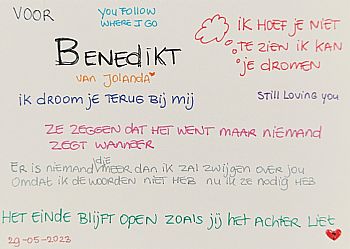 VOOR
YOU FOLLOW
WHERE I GO
BENEDIKT
van Jolanda
IK HOEF JE NIET
TE ZIEN IK KAN
JE DROMEN
IK DROOM JE TERUG BIJ MIJ
STILL LOVING YOU
ZE ZEGGEN DAT HET WENT MAAR NIEMAND
ZEGT WANNEER
ER IS NIEMAND die MEER DAN IK ZAL ZWIJGEN OVER JOU
OMDAT IK DE WOORDEN NIET HEB NU IK ZE NODIG HEB
HET EINDE BLIJFT OPEN ZOALS JIJ HET ACHTER LIET
29-05-2023